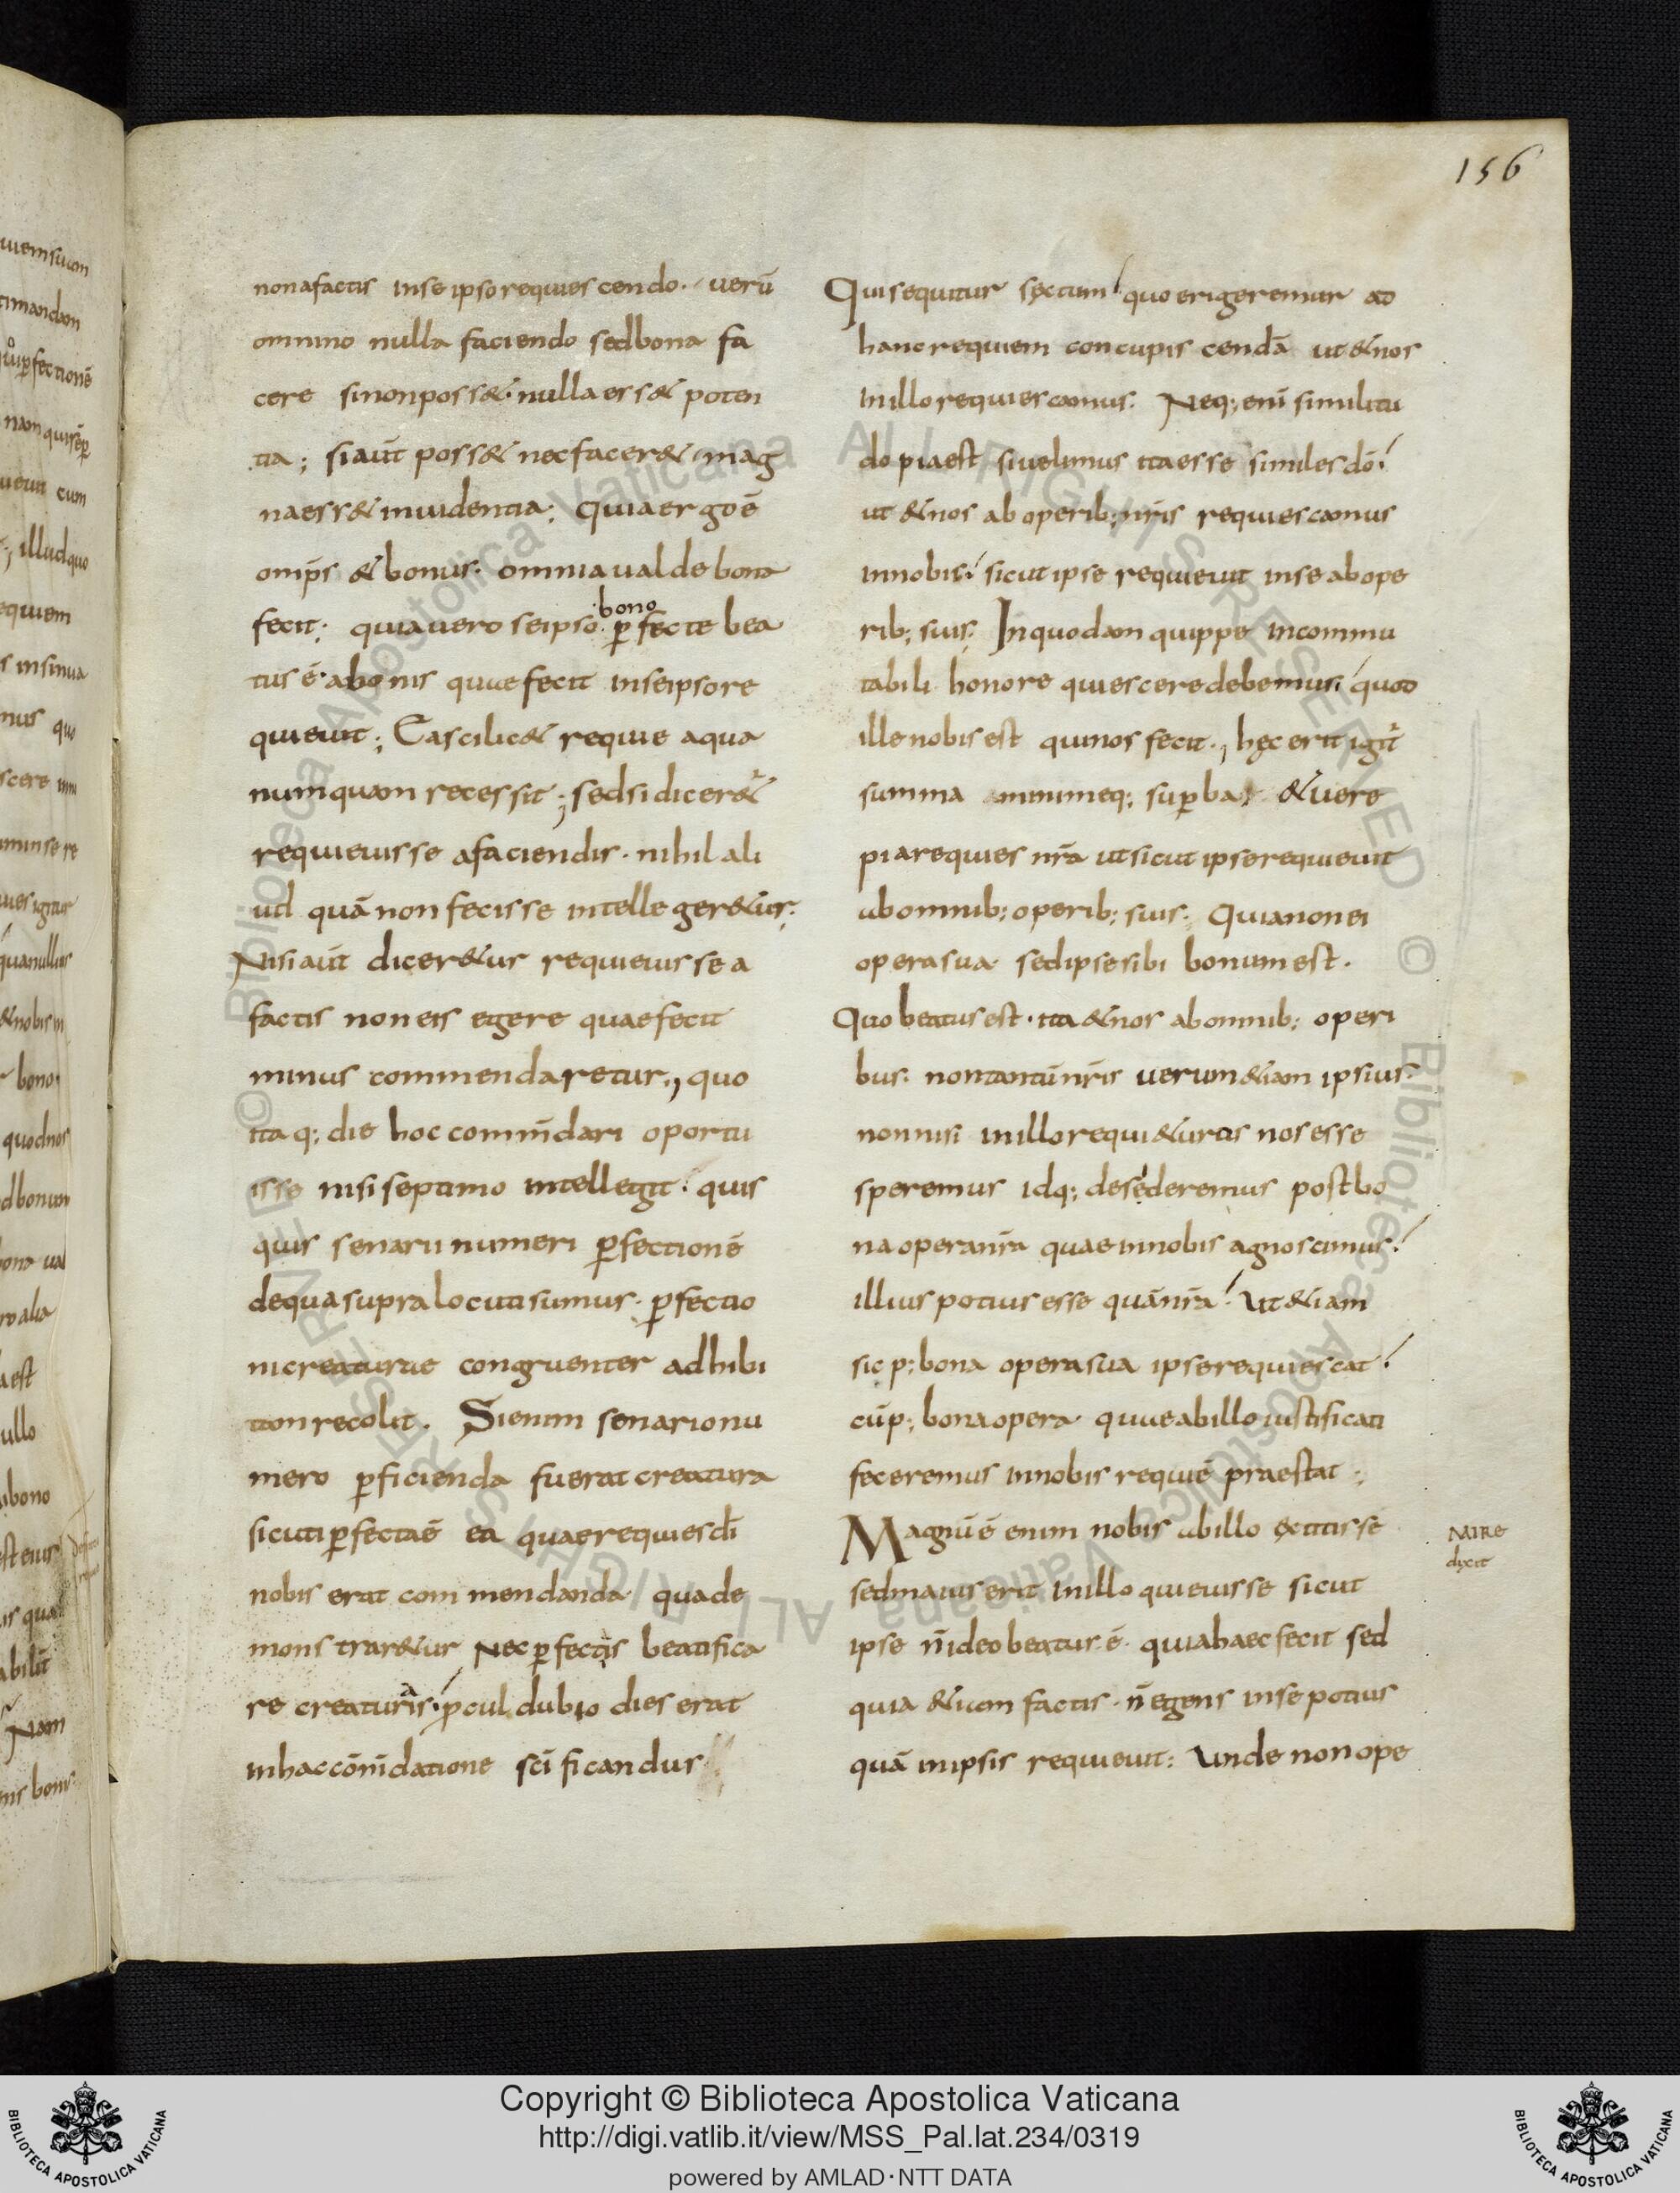 156
non a factis inseipso requiescendo. verū
omnino nulla faciendo sed bona fa
cere si non poss&. nulla ess& poten
tia; si aūt poss& nec facer&. mag
na ess& inuidentia; Quia ergo ē
omīps & bonus. omnia ualde bona
fecit; quia uero seipso bono p̄fecte bea
tus ē. a bonis quae fecit inseipso re
quieuit; Ea scilic& requie a qua
numquam recessit; sed si dicer&ur
requieuisse a faciendis. nihil ali
ud quā non fecisse intelleger&ur;
Nisi aūt dicer&ur requieuisse a
factis non eis egere quae fecit
minus commendaretur; quo
itaq; die hoc commn̄dari oportu
isse nisi septimo intellegit. quis
quis senarii numeri p̄fectionē
de qua supra locuti sumus. p̄fectio
ni creaturae congruenter adhibi
tam recolit. Si enim senario nu
mero p̄ficienda fuerat creatura
sicuti p̄fecta ē ea quae requies dī
nobis erat commendanda qua de
monstrar&ur nec p̄fectis beatifica
re creaturis. p̄cul dubio dies erat
in hac cōmn̄datione scīficandus
Qui sequitur sęctum quo erigeremur ad
hanc requiem concupiscendā ut & nos
in illo requiescamus. Neq; enī similitu
do pia est si uelimus ita esse similes dō.
ut & nos ab operib; nr̄is requiescamus
in nobis. sicut ipse requieuit in se ab ope
rib; suis. In quodam quippe incommu
tabili honore quiescere debemus. quod
ille nobis est qui nos fecit., hęc erit igit̄
summa minimeq; sup̄ba & uere
pia requies nr̄a ut sicut ipse requieuit
ab omnib; operib; suis. Quia non ei
opera sua sed ipse sibi bonum est.
Quo beatus est. ita & nos ab omnib; operi
bus. non tantū nr̄is uerum &iam ipsius.
non nisi in illo requi&uros nos esse
speremus idq; desederemus post bo
na opera nr̄a quae in nobis agnoscimus.
illius potius esse quā nr̄a. Ut &iam
sic p; bona opera sua ipse requiescat.
cū p; bona opera quae ab illo iustificati
feceremus in nobis requiē praestat;
Magnū ē enim nobis ab illo ęxtitisse
sed maius erit in illo quieuisse sicut
ipse n̄ ideo beatus ē. quia haec fecit sed
quia &iam factis n̄ egens in se potius
quā in ipsis requieuit: Unde non ope
MIRE
dixit
Copyright © Biblioteca Apostolica Vaticana
http://digi.vatlib.it/view/MSS_Pal.lat.234/0319
powered by AMLAD·NTT DATA
BIBLIOTECA APOSTOLICA VATICANA
BIBLIOTECA APOSTOLICA VATICANA
© Biblioteca Apostolica Vaticana ALL RIGHTS RESERVED © Biblioteca Apostolica Vaticana ALL RIGHTS RESERVED